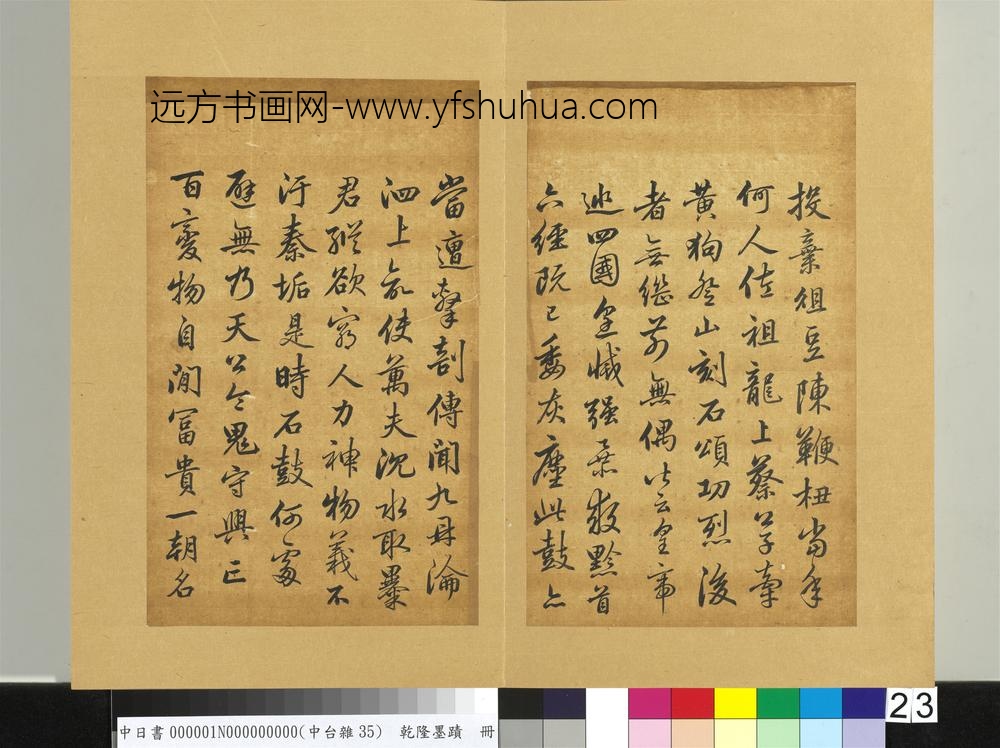 远方书画网-www.yfshuhua.com
投棄俎豆陳鞭杻當年
何人佐祖龍上蔡公子牽
黃狗登山刻石頌功烈後
者無繼前無偶皆云皇帝
巡四國烹滅强暴救黔首
六經既已委灰塵此鼓亦
當遭擊剖傳聞九鼎淪
泗上欲使萬夫沉水取暴
君縱欲窮人力神物義不
汙秦垢是時石鼓何處
避無乃天公令鬼守興亡
百變物自閒富貴一朝名
中日書000001N000000000(中台雜35) 乾隆墨蹟 冊
23